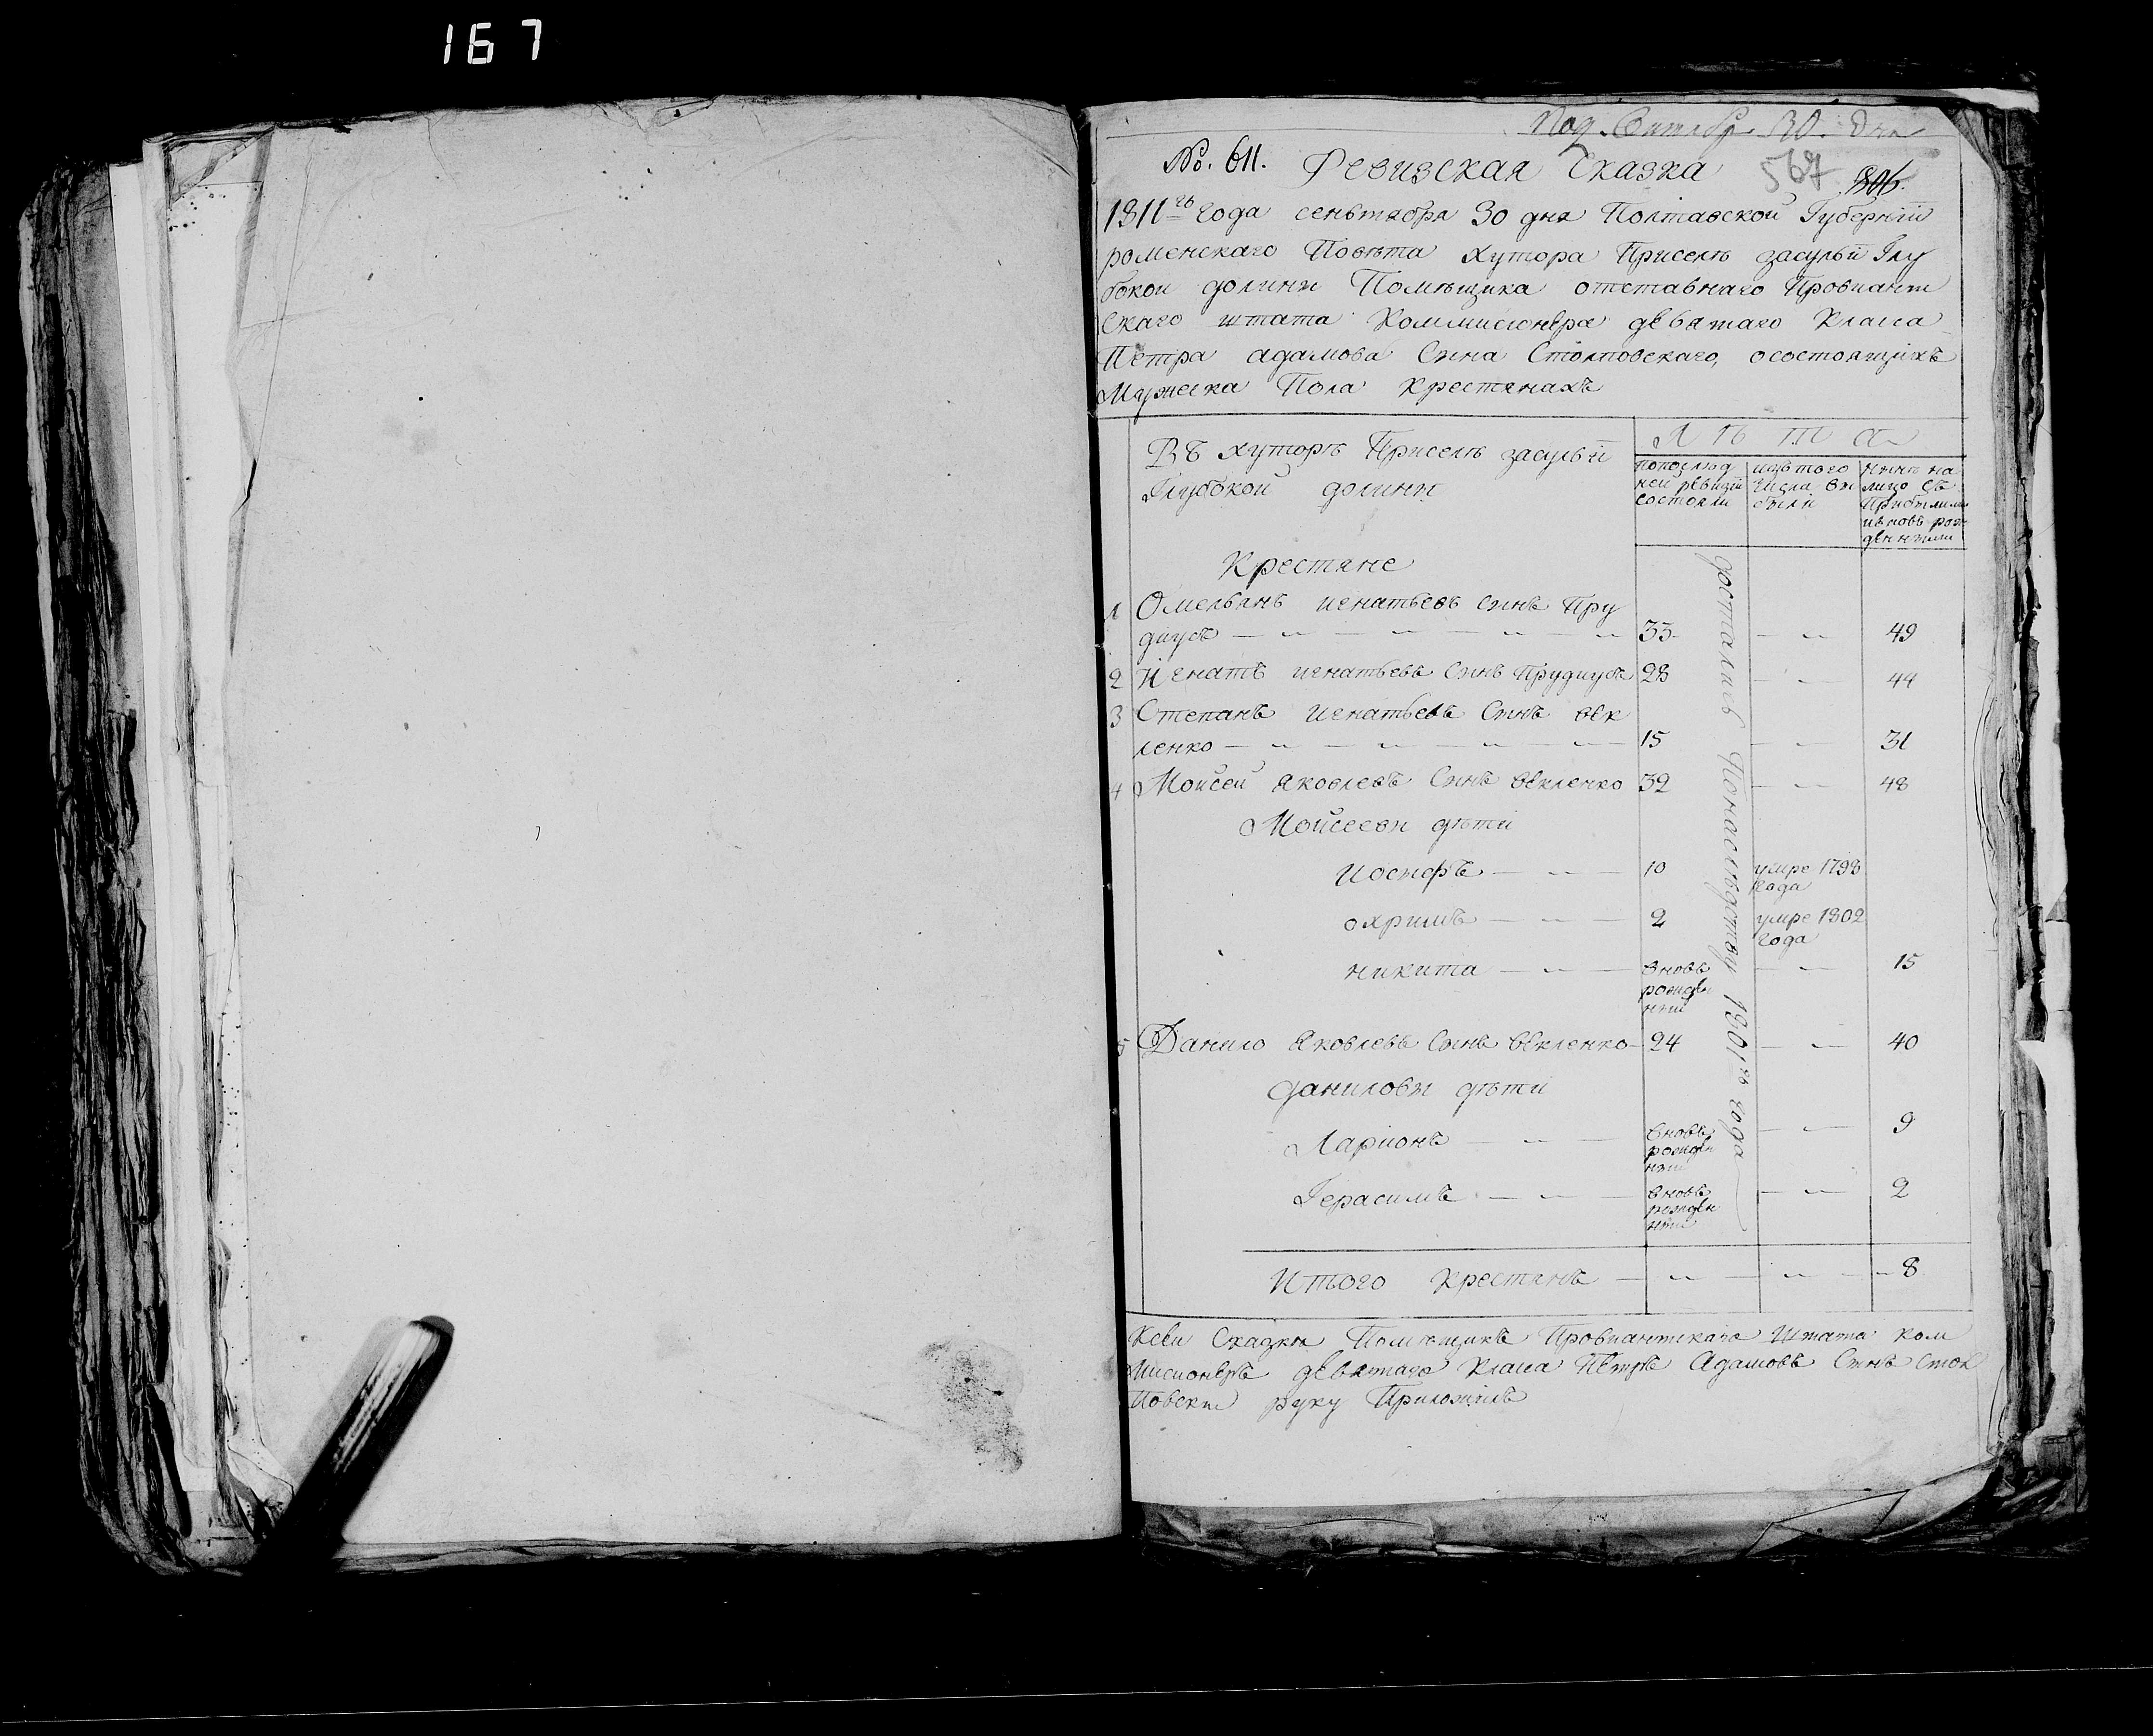 167
Под. Октябр 30. дня
No. 611. Ревизская Сказка 567 806.
1811го года сеньтября 30 дня Полтавской Губернїи
роменскаго Повѣта хутора Приселѣ засульи Глу
бокои долини Помѣщика отставнаго Провиант
скаго штата Коммисионера девятаго Класа
Петра адамова Сина Столповскаго, осостоящихъ
Мужеска Пола крестянахъ
Въ хуторѣ Приселѣ засульи
Глубокой долини
Лѣта
попослѣд
ней ревизіи
состояли
изътого
числа ви
были
нинѣ на
лицо съ
Прибилими
ивновь рож
денними
Крестяне
1 Омельянъ игнатьевъ синъ Пру
диусъ — „ — „ — „ — „ 33. — „ 49
2 Игнатъ игнатьевъ синъ Прудиусъ 28 — „ — 44
3 Степанъ игнатьевъ Синъ век
ленко — „ — „ — „ — „ — 15 — „ — 31
4 Мойсей яковлевъ Синъ векленко 32 — „ — 48
Мойсееви дѣти
Иосифъ — „ — 10 умре 1798
года
охримъ — „ — 2 умре 1802
года
никита — „ — вновь
рожден
ний — „ — 15
5 Данило яковлевъ Синъ векленко — 24 — „ — 40
данилови дѣти
Ларионъ — „ — вновь
рожден
ний — „ — 9
Герасимъ — „ — вновь
рожден
ний — „ — 2
достались Понаслѣдству 1801го года
Итого крестянъ — „ — „ — „ 8
Ксеи Сказкѣ Помѣщикъ Провиантскаго Штата ком
мисионеръ девятаго Класа Петръ Адамовъ Синъ Стол
повски руку Приложилъ